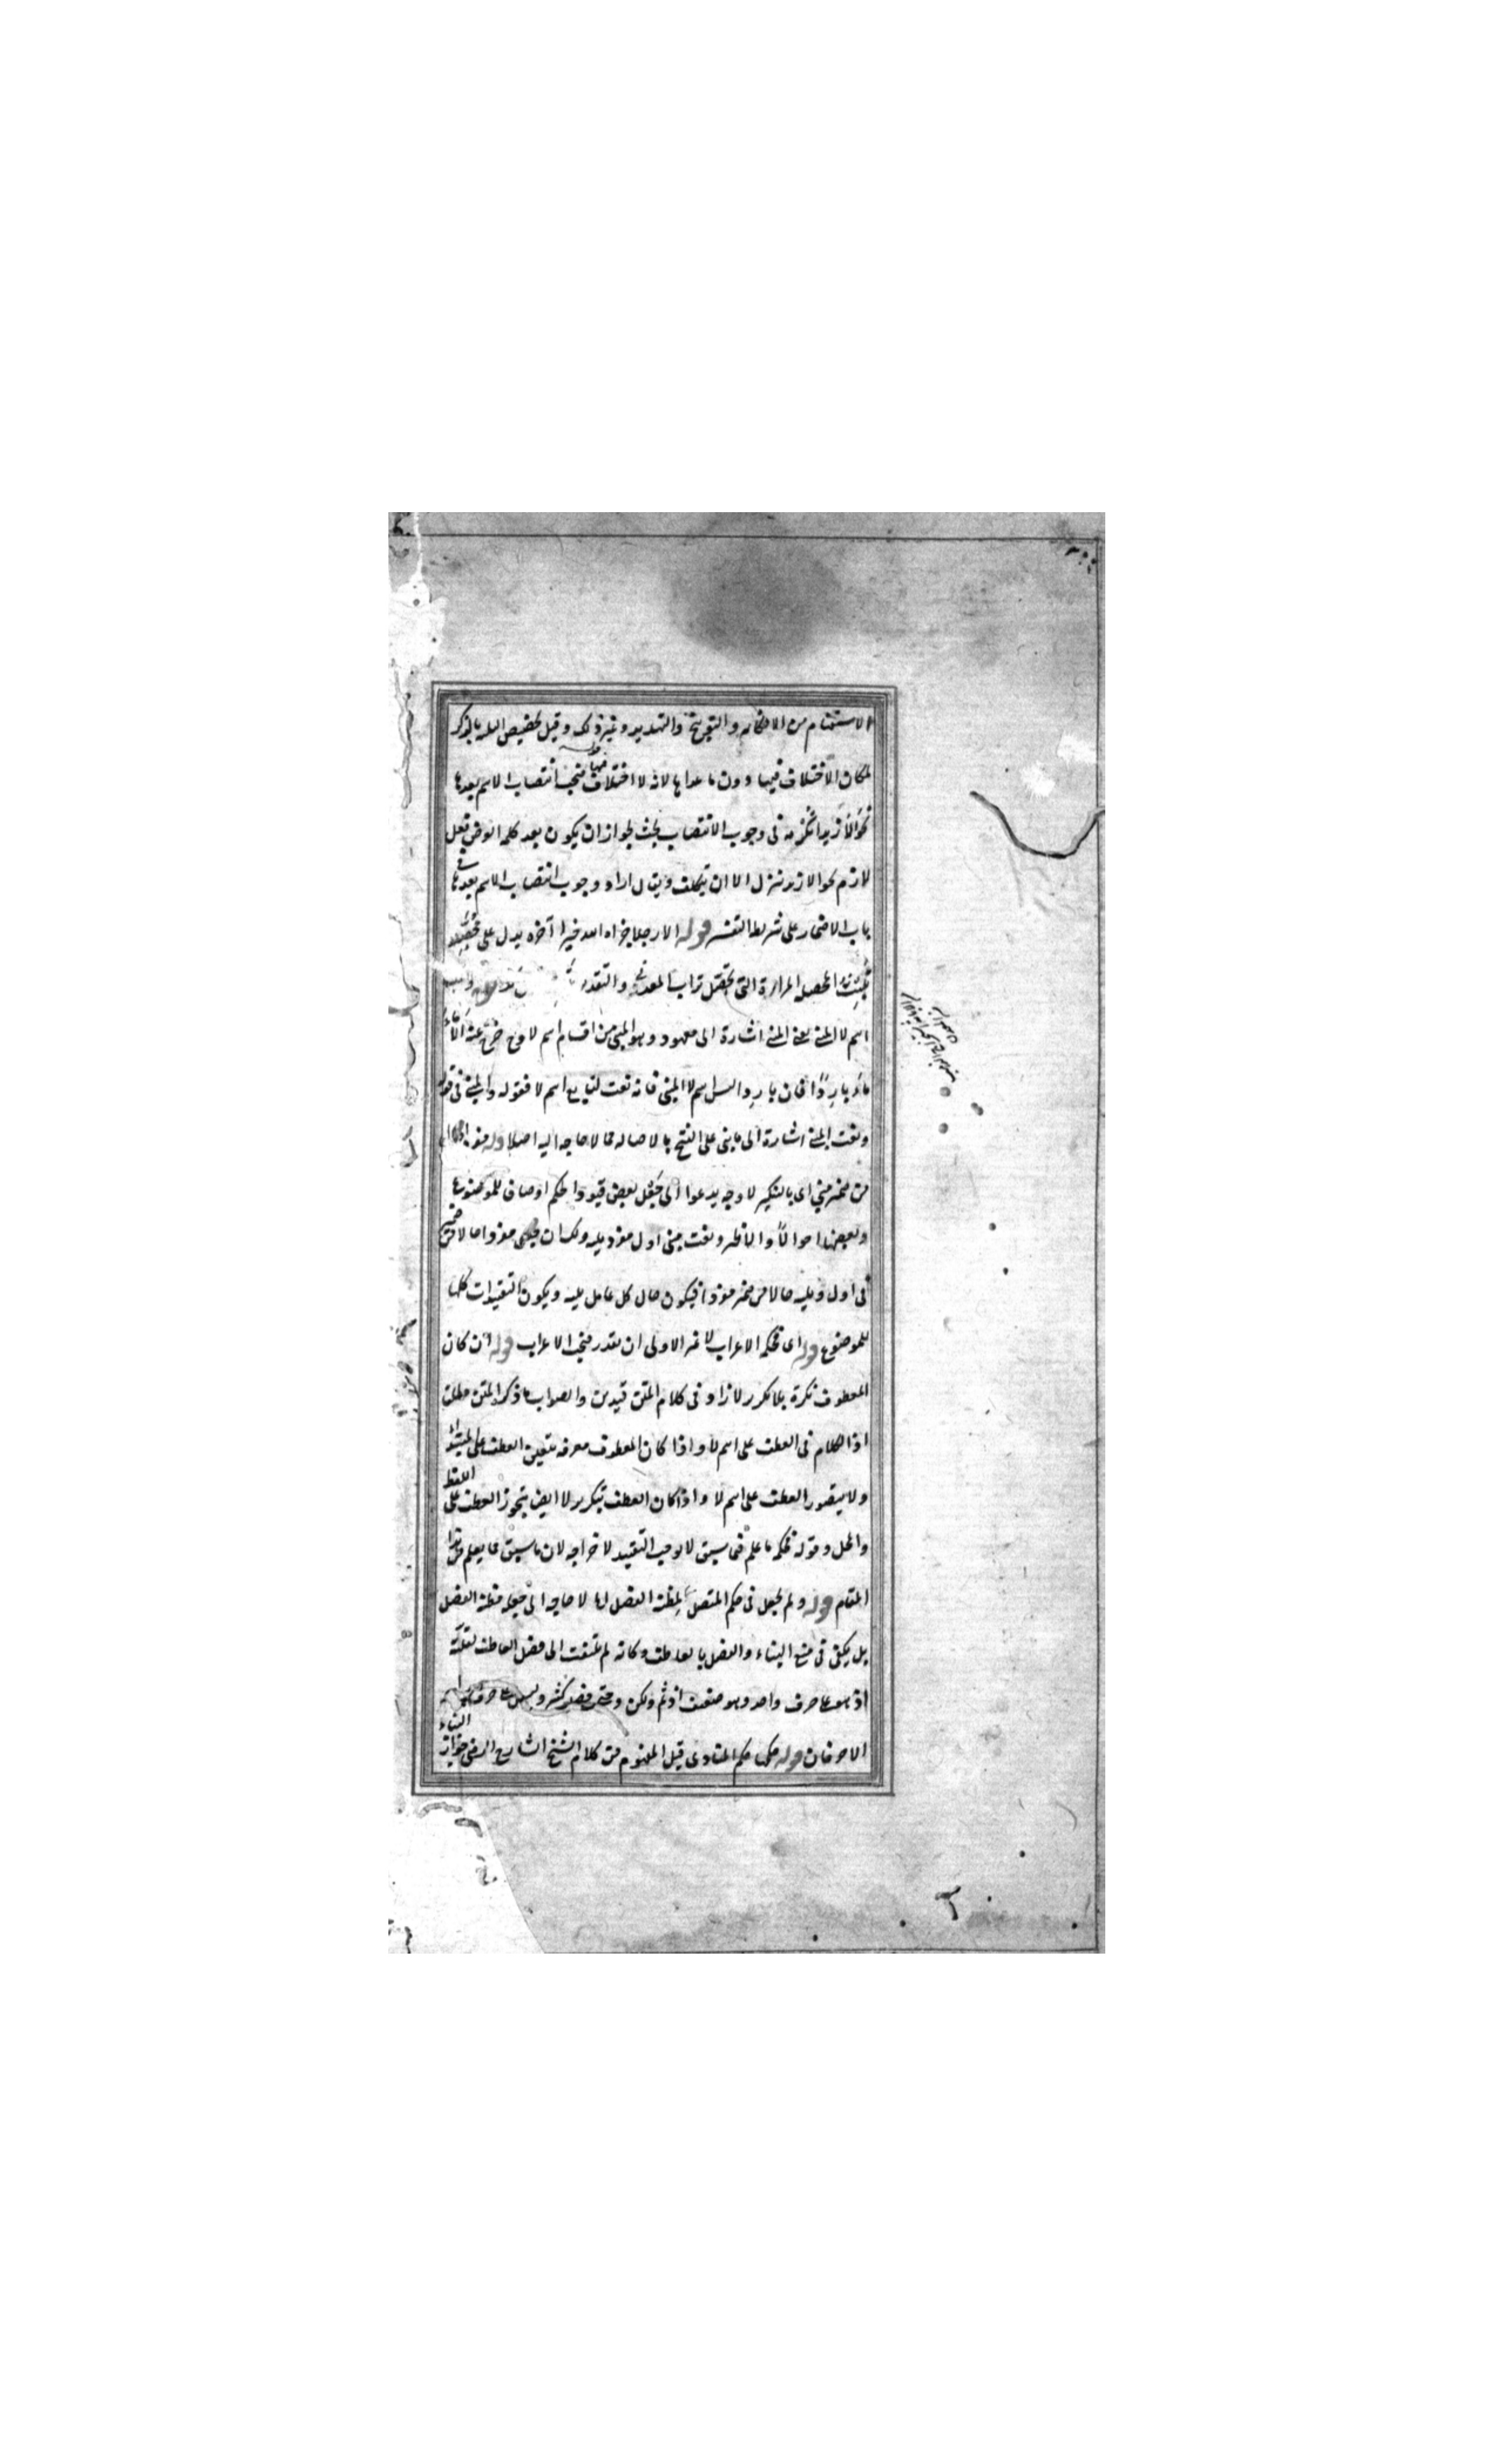 الاستفهام من الانكار والتوبيخ والتهديد وغير ذلك وقيل تخصيص الثلثة بالذكر
لمكان الاختلاف فيها دون ما عداها لانه لا اختلاف فيها فتجب انتصاب الاسم بعدها
نحو الا زيدا تكرمه فى وجوب الانتصاب بحث لجواز ان يكون بعد كلمة العرض فعل
لازم نحو الا زيد تنزل الا ان يتكلف ويقال اراد وجوب انتصاب الاسم بعدها فى
باب الاضمار على شريطة التفسير قوله الا رجلا جزاه الله خيرا آخره يدل على محصلة
تبيت المحصلة المرأة التى تحصل تراب المعدن والتقدير
اسم لا المبنى يعنى المبنى اشارة الى معهود وهو المبنى من اقسام اسم لا فح خرج عنه لا ماء
ماء باردا فان باردا ليس اسم لا المبنى فانه نعت لتابع اسم لا فقوله والمبنى فى قوله
ونعت المبنى اشارة الى ما بنى على الفتح بالاصالة مما لا حاجة اليه اصلا قوله
من ضمير مبنى اى بالتنكير لا وجه يدعوا الى جعل بعض قيود الحكم اوصاف للموضوعها
وبعضها احوالا والاظهر ونعت مبنى اول مفرد يليه ولك ان تجعل مفردا حالا من ضمير
فى اول ويليه حالا من ضمير مفردا فيكون حال كل عامل يليه ويكون التقييدات كلها
للموضوع قوله اى فحكمه الاعراب لا غير الاولى ان يقدر فيجب الاعراب قوله ان كان
المعطوف نكرة بلا تكرير لا زاد فى كلام المتن قيدين والصواب ما ذكر المتن مطلق
اذ الكلام فى العطف على اسم لا واذا كان المعطوف معرفة يتعين العطف على المبتدأ
ولا يتصور العطف على اسم لا واذا كان العطف بتكرير لا ايض يتجوز العطف على اللفظ
والمحل وقوله فحكمه ما علم فى سبق لا يوجب التقييد لاخراجه لان ما سبق مما يعلم من هذا
المقام قوله ولم يجعل فى حكم المتصل لمظنة الفصل لها لا حاجة الى جعله مظنة الفصل
بل يكفى فى منع البناء والفصل بالعاطف وكانه لم يلتفت الى فصل العاطف لقلته
اذ هو على حرف واحد وهو ضعيف
الا حرفان قوله حكمها حكم المنادى قيل المفهوم من كلام الشيخ الشارح الرضى جواز البناء